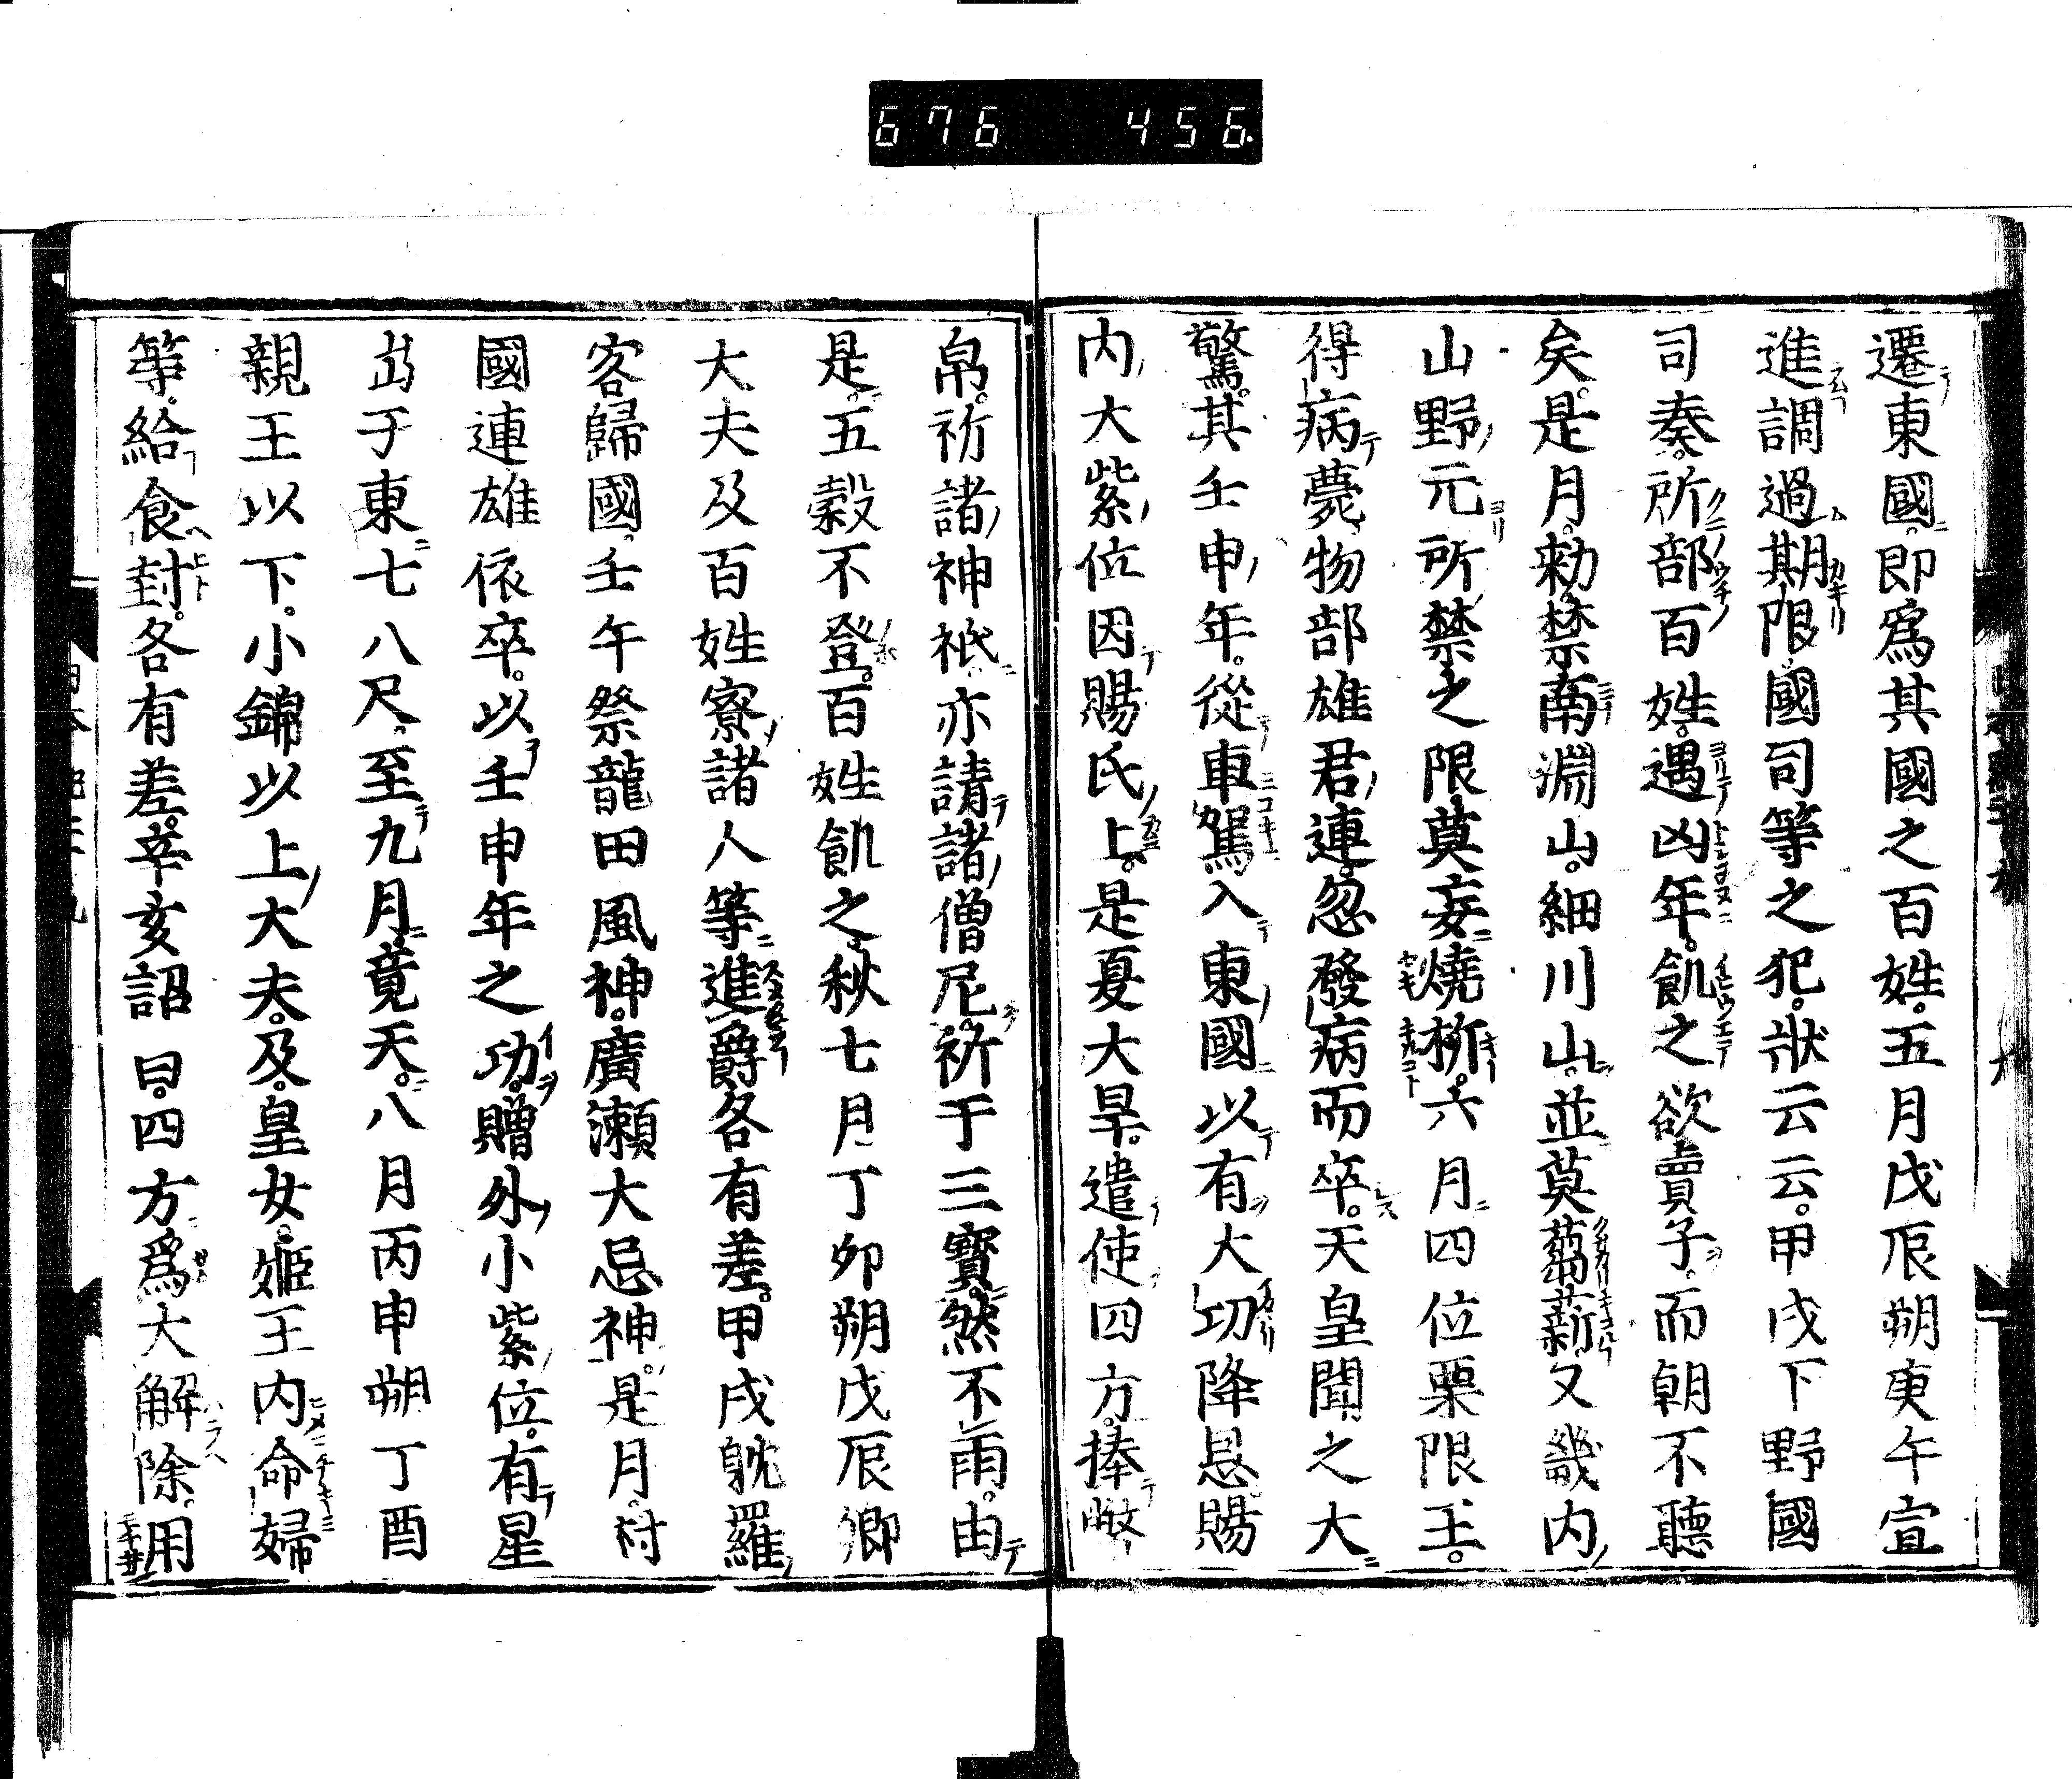 676 456.
遷東國即爲其國之百姓五月戊辰朔庚午宣
進調過期限國司等之犯狀云云甲戌下野國
司奏所部百姓遇凶年飢之欲賣子而朝不聽
矣是月勅禁南淵山細川山並莫蒭薪又畿内
山野元所禁之限莫妄燒析六月四位栗隈王
得病薨物部雄君連忽發病而卒天皇聞之大
驚其壬申年從車駕入東國以有大功降恩賜
内大紫位因賜氏上是夏大旱遣使四方捧幣
帛祈諸神祇亦請諸僧尼祈于三寶然不雨由
是五穀不登百姓飢之秋七月丁卯朔戊辰卿
大夫及百姓寮諸人等進爵各有差甲戌躭羅
客歸國壬午祭龍田風神廣瀬大忌神是月村
國連雄依卒以壬申年之功贈外小紫位有星
出于東七八尺至九月竟天八月丙申朔丁酉
親王以下小錦以上大夫及皇女姫王内命婦
等給食封各有差辛亥詔曰四方爲大解除用